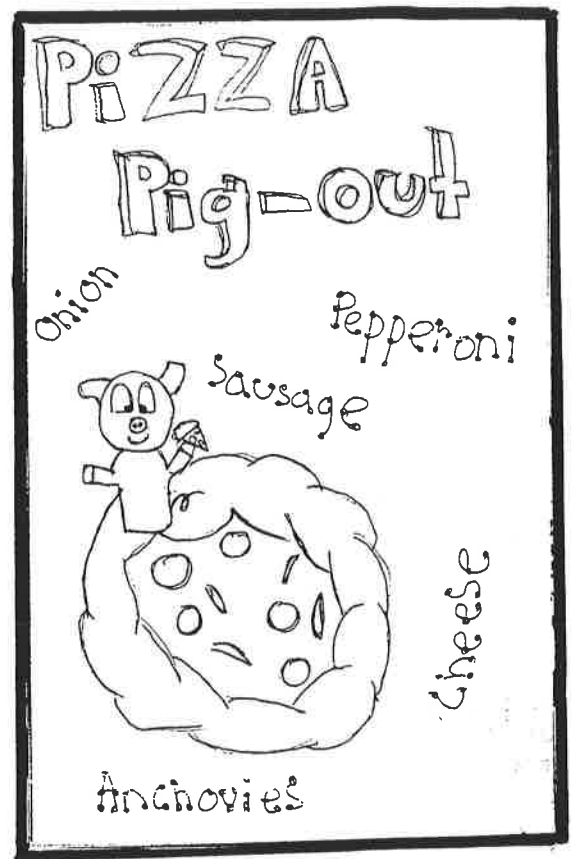 PiZZA
Pig-out
Onion
Pepperoni
Sausage
Cheese
Anchovies